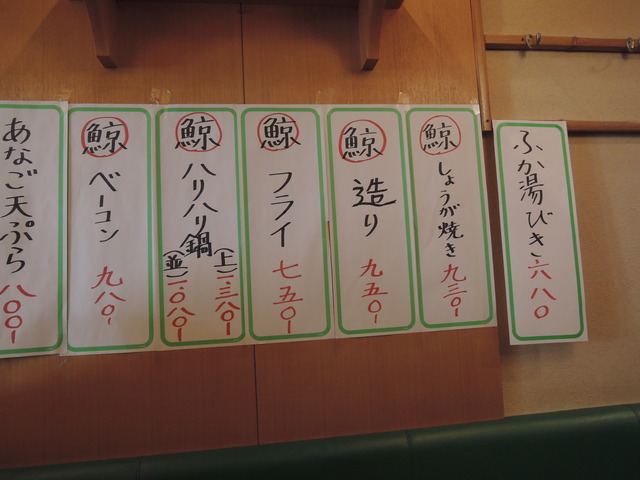 ふか湯びき 六八〇
鯨 しょうが焼き 九三〇-
鯨 造り 九五〇-
鯨 フライ 七五〇-
鯨 ハリハリ鍋
(上) 一三八〇-
(並) 一〇八〇-
鯨 ベーコン 九八〇-
あなご天ぷら 八〇〇-